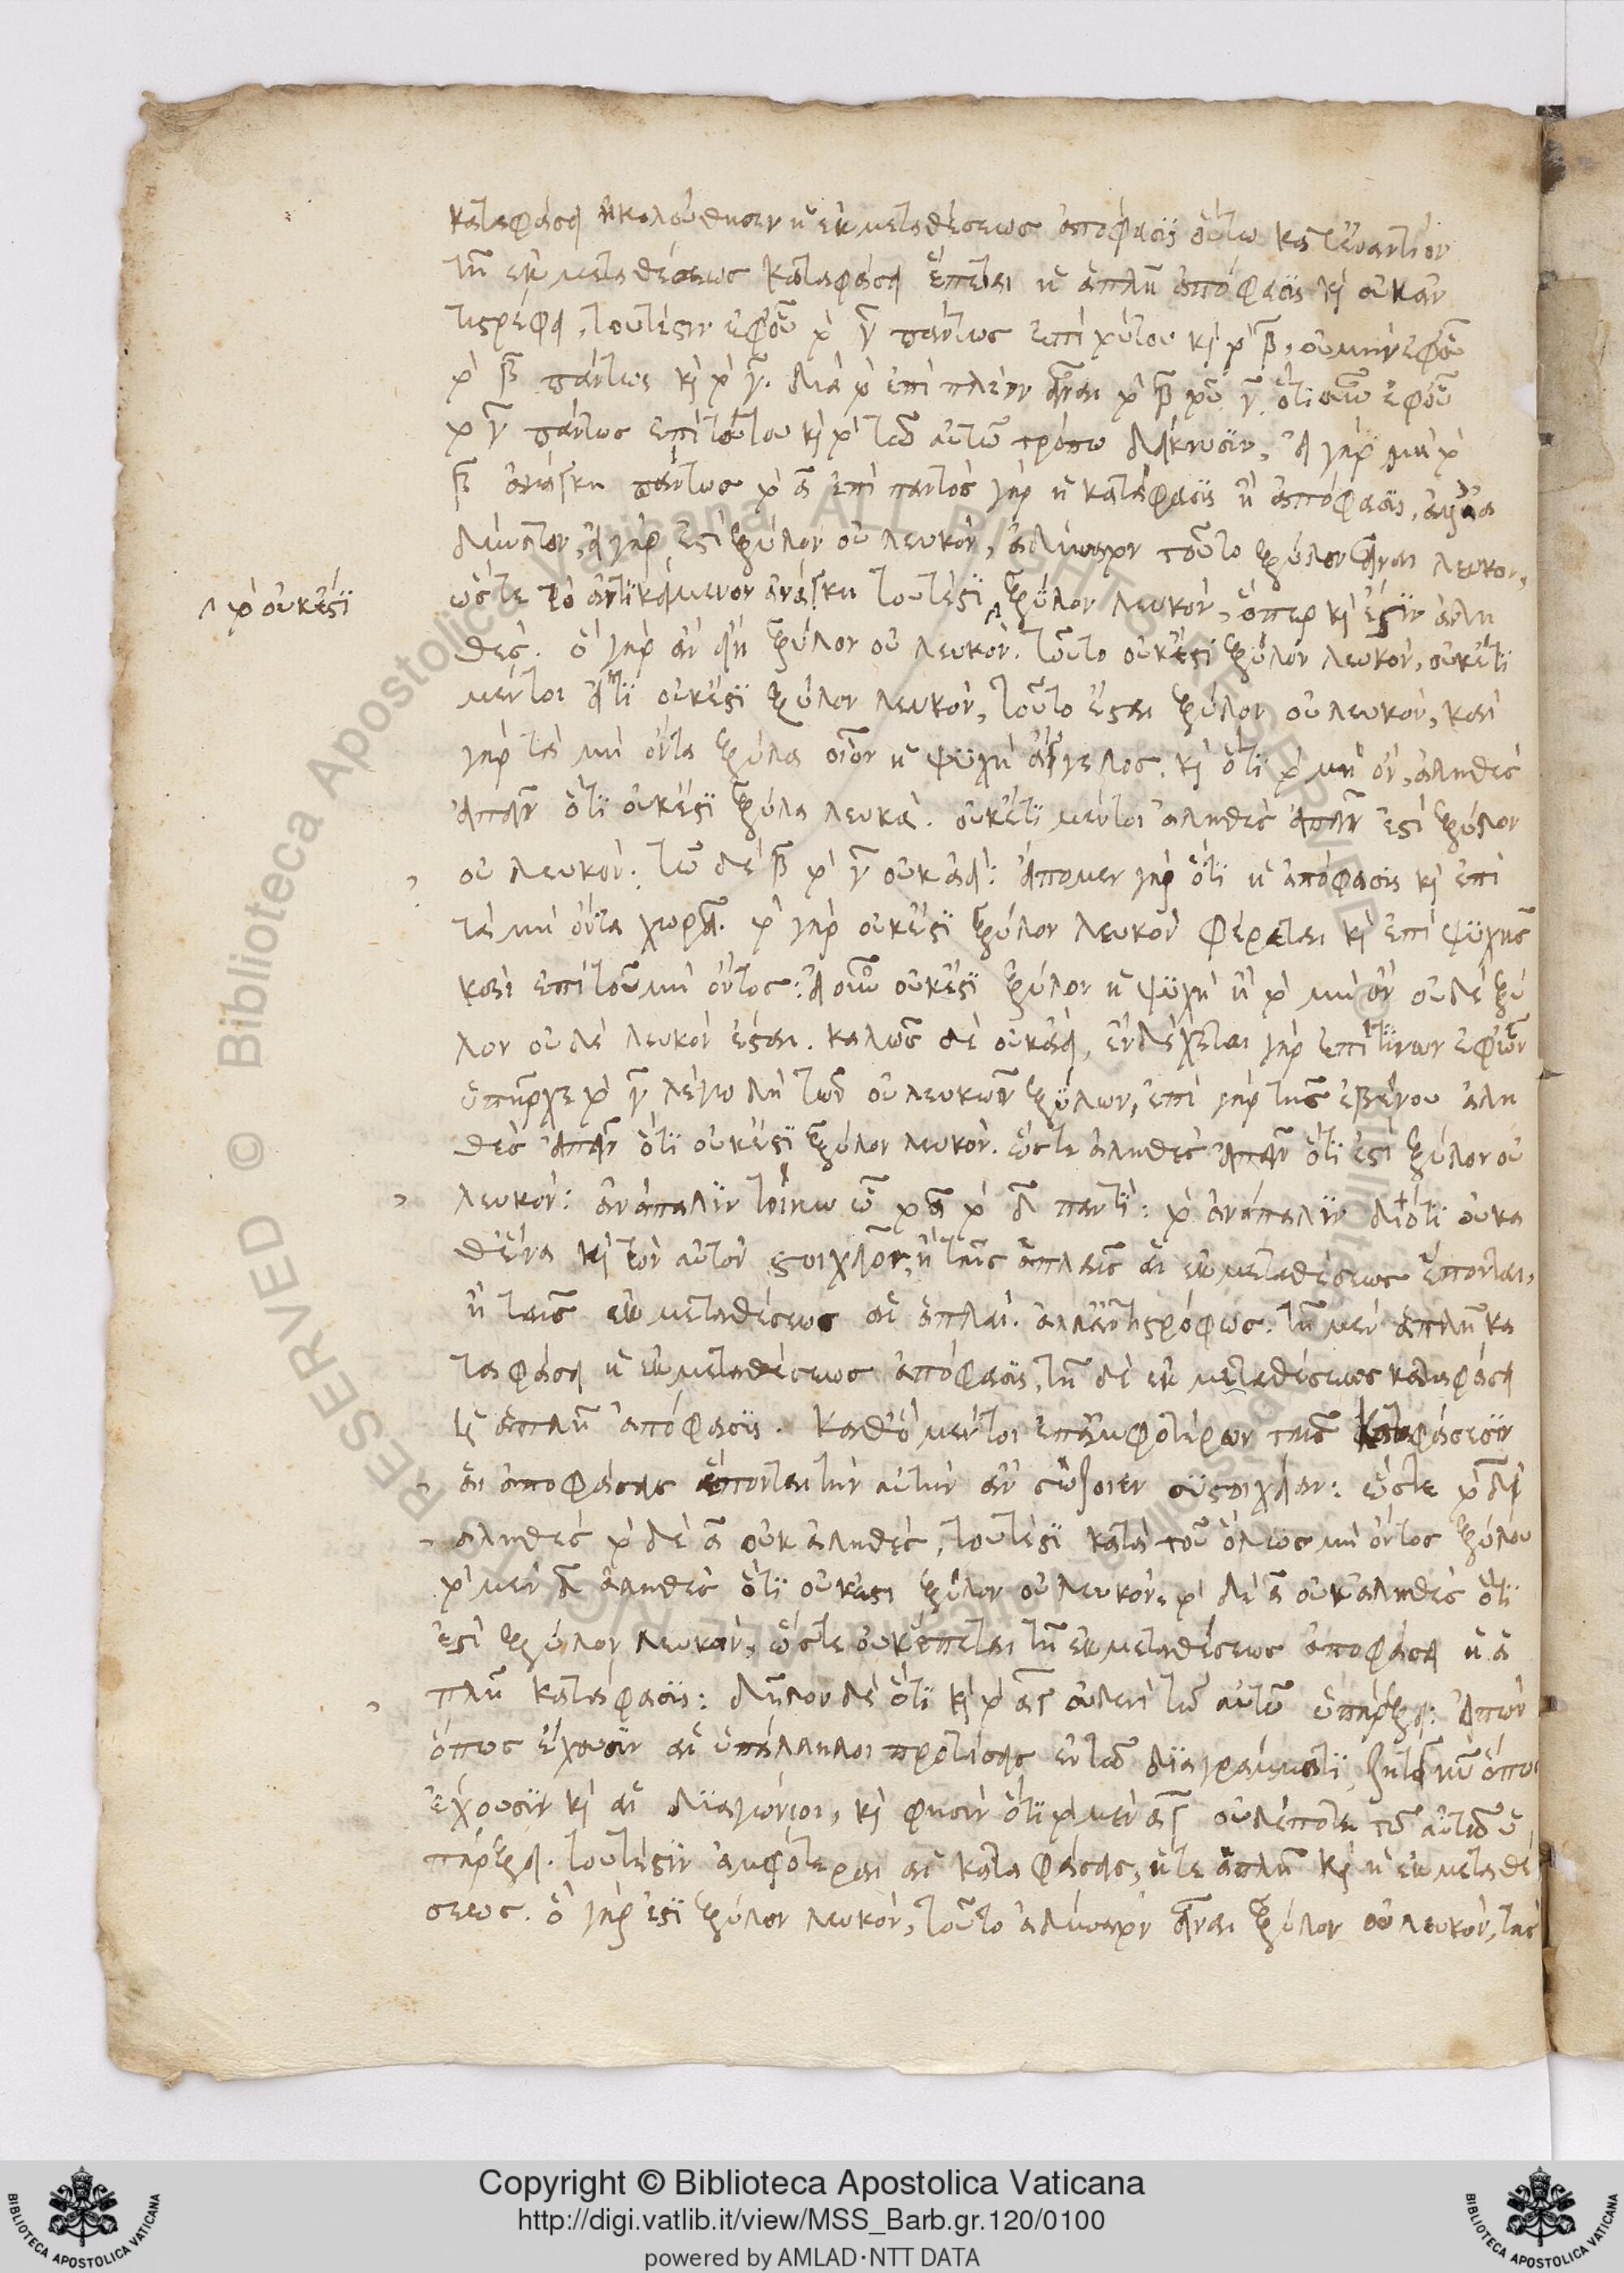 καταφάσει ἠκολούθησεν ἡ ἐκ μεταθέσεως ἀπόφασις οὕτω κατ' ἐναντίον
τῇ ἐκ μεταθέσεως καταφάσει ἕπεται ἡ ἁπλῆ ἀπόφασις κ οὐκ ἀν
τιστρέφει, τουτέστιν ἐφ' οὗ τὸ γ πάντως ἐπὶ τούτου κ τὸ β, οὐ μὴν ἐφ' οὗ
τὸ β πάντως κ τὸ γ. διὰ τὸ ἐπὶ πλέον εἶναι τὸ β τοῦ γ. ὅτι οὖν ἐφ' οὗ
τὸ γ πάντως ἐπὶ τούτου κ τὸ τῷ αὐτῷ τρόπω δείκνυσιν, εἰ γὰρ μὴ τὸ
β ἀνάγκη πάντως τὸ α ἐπὶ παντὸς γὰρ ἡ κατάφασις ἢ ἀπόφασις,
ἀδύνατον, εἰ γάρ ἐστι ξύλον οὐ λευκόν, ἀδύνατον τοῦτο ξύλον εἶναι λευκόν,
ὥστε τὸ ἀντικείμενον ἀνάγκη τουτέστι ξύλον λευκόν, ὅπερ κ ἔστιν ἀλη
^ τὸ οὐκ ἔστι
θές. ὃ γὰρ ἂν εἴη ξύλον οὐ λευκόν. τοῦτο οὐκ ἔστι ξύλον λευκόν, οὐκέτι
μέντοι εἴ τι οὐκ ἔστι ξύλον λευκόν, τοῦτο ἔσται ξύλον οὐ λευκόν, καὶ
γὰρ τὰ μὴ ὄντα ξύλα οἷον ἡ ψυχὴ ἄγγελος. κ ὅτι τὸ μὴ ὄν, ἀληθὲς
εἰπεῖν ὅτι οὐκ ἔστι ξύλα λευκά. οὐκέτι μέντοι ἀληθὲς εἰπεῖν ἐστὶ ξύλον
οὐ λευκόν. τῷ δὲ β τὸ γ οὐκ ἀεί: εἴπομεν γὰρ ὅτι ἡ ἀπόφασις κ ἐπὶ
τὰ μὴ ὄντα χωρεῖ. τὸ γὰρ οὐκ ἔστι ξύλον λευκὸν φέρεται κ ἐπὶ ψυχῆς
καὶ ἐπὶ τοῦ μὴ ὄντος: εἰ οὖν οὐκ ἔστι ξύλον ἡ ψυχὴ ἢ τὸ μὴ ὂν οὐδὲ ξύ
λον οὐδὲ λευκὸν ἔσται. καλῶς δὲ οὐκ ἀεί, ἐνδέχεται γὰρ ἐπί τινων ἐφ' ὧν
ὑπῆρχε τὸ γ λέγω δὴ τῶν οὐ λευκῶν ξύλων, ἐπὶ γὰρ τῆς ἐβένου ἀλη
θὲς εἰπεῖν ὅτι οὐκ ἔστι ξύλον λευκόν. ὥστε ἀληθὲς εἰπεῖν ὅτι ἐστὶ ξύλον οὐ
λευκόν: ἀνάπαλιν τοίνυν ᾧ τὸ α τὸ δ παντί: τὸ ἀνάπαλιν διότι οὐ κα
θ' ἕνα κ τὸν αὐτὸν στοιχεῖον, ἢ ταῖς ἁπλαῖς αἱ ἐκ μεταθέσεως ἕπονται,
ἢ ταῖς ἐκ μεταθέσεως αἱ ἁπλαῖ. ἀλλ' ἀντιστρόφως. τῇ μὲν ἁπλῇ κα
ταφάσει ἡ ἐκ μεταθέσεως ἀπόφασις, τῇ δὲ ἐκ μεταθέσεως καταφάσει
ἡ ἁπλῆ ἀπόφασις. καθ' ὃ μέντοι ἐπ' ἀμφοτέρων ταῖς καταφάσεσιν
αἱ ἀποφάσεις ἕπονται τὴν αὐτὴν ἂν σώζοιεν συστοιχίαν: ὥστε τὸ δ
ἀληθὲς τὸ δὲ α οὐκ ἀληθές, τουτέστι κατὰ τοῦ ὅλως μὴ ὄντος ξύλου
τὸ μὲν δ ἀληθὲς ὅτι οὐκ ἔστι ξύλον οὐ λευκόν, τὸ δὲ α οὐκ ἀληθὲς ὅτι
ἐστὶ ξύλον λευκόν, ὥστε οὐκ ἕπεται τῇ ἐκ μεταθέσεως ἀποφάσει ἡ ἁ
πλῆ κατάφασις: δῆλον δὲ ὅτι κ τὸ αγ οὐδενὶ τῷ αὐτῷ ὑπάρξει: εἰπὼν
ὅπως ἔχουσιν αἱ ὑπάλληλοι προτάσεις ἐν τῷ διαγράμματι, ζητεῖ νῦν ὅπως
ἔχουσιν κ αἱ διαγώνιοι, κ φησὶν ὅτι τὸ μὲν αγ οὐδέποτε τῷ αὐτῷ ὑ
πάρξει. τουτέστιν ἀμφότεραι αἱ καταφάσεις, ἥτε ἁπλῆ κ ἡ ἐκ μεταθέ
σεως. ὃ γάρ ἐστι ξύλον λευκόν, τοῦτο ἀδύνατον εἶναι ξύλον οὐ λευκόν, τὰς
RESERVED © Biblioteca Apostolica Vaticana ALL RIGHTS RESERVED
Copyright © Biblioteca Apostolica Vaticana
http://digi.vatlib.it/view/MSS_Barb.gr.120/0100
powered by AMLAD·NTT DATA
BIBLIOTECA APOSTOLICA VATICANA
BIBLIOTECA APOSTOLICA VATICANA